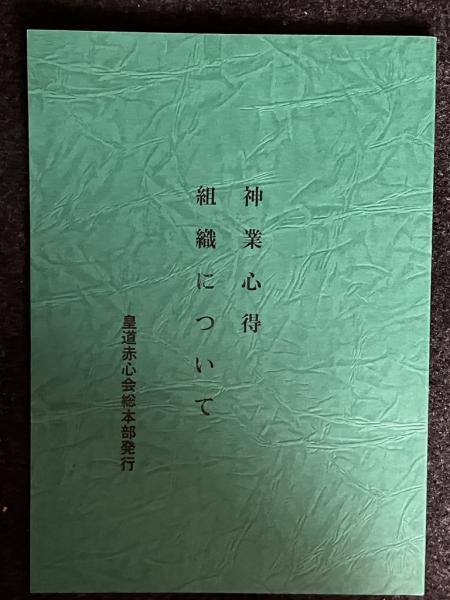 神業心得
組織について
皇道赤心会総本部発行